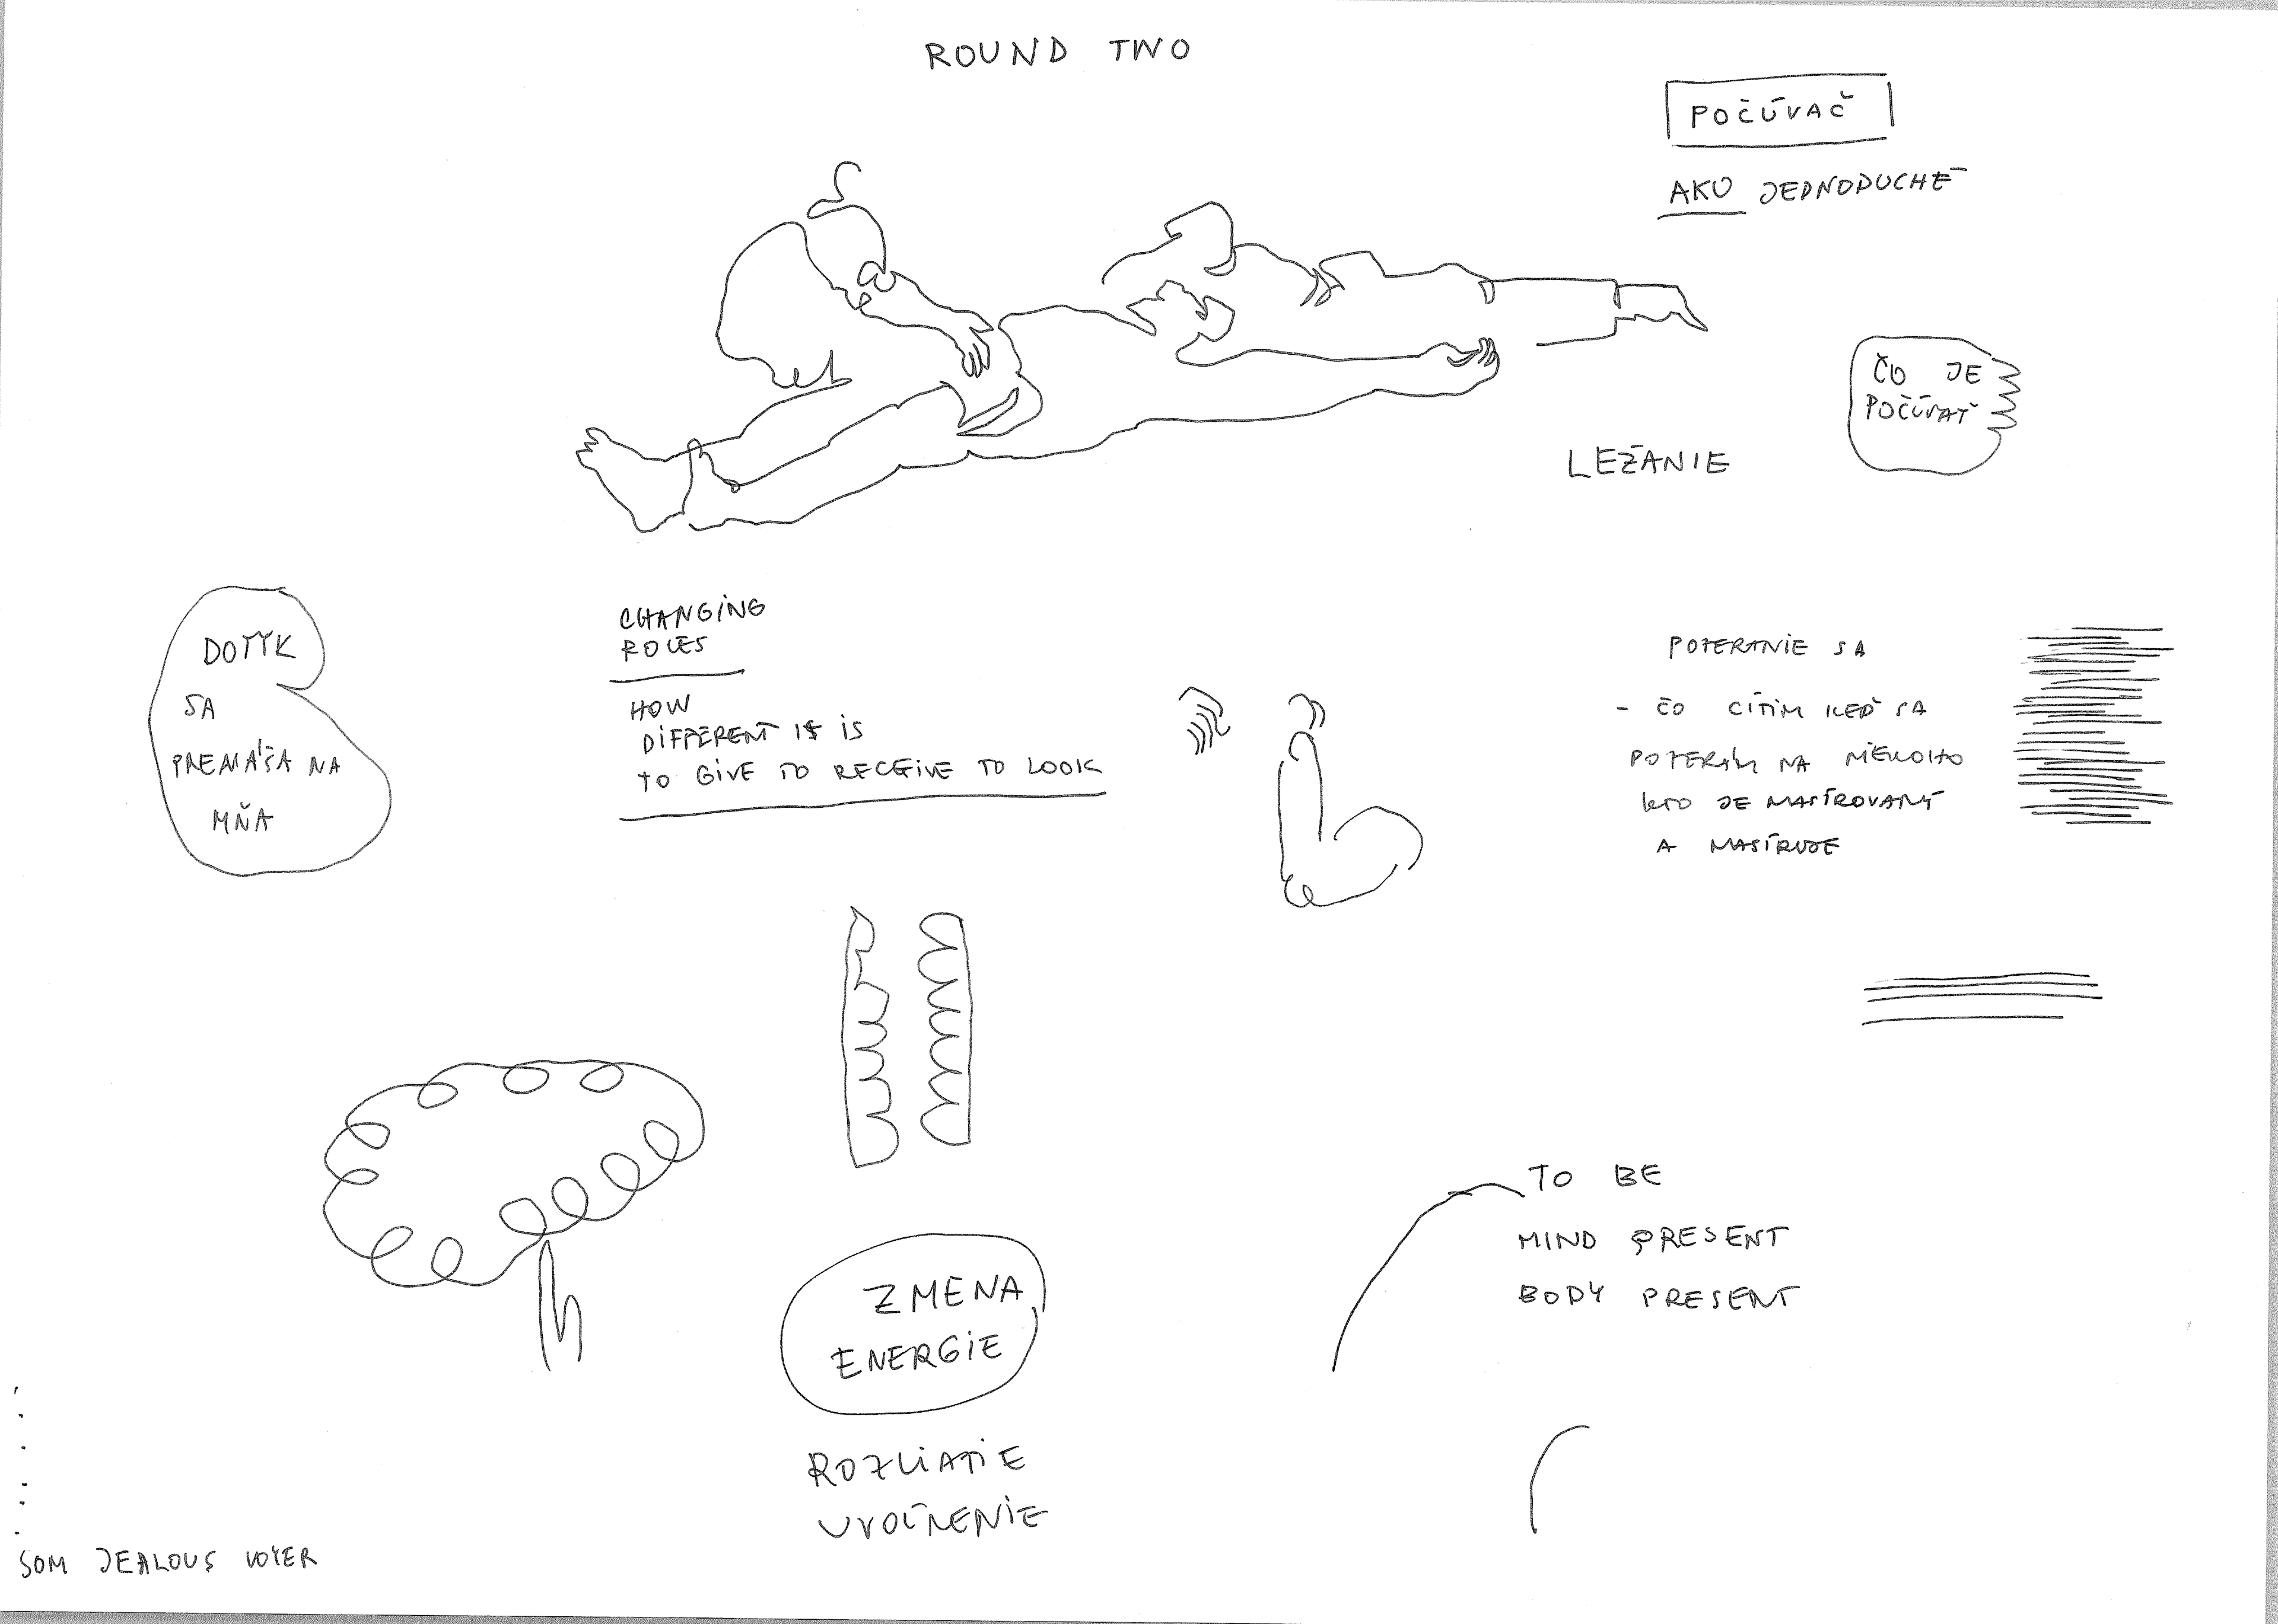 ROUND TWO
POČÚVAČ
AKO JEDNODUCHÉ
ČO JE
POČÚVAŤ
LEŽANIE
DOTYK
SA
PRENÁŠA NA
MŇA
CHANGING
ROLES
HOW
DIFFERENT IS IS
TO GIVE TO RECEIVE TO LOOK
POZERANIE SA
- ČO CÍTIM KEĎ SA
POZERÁM NA NIEKOHO
KTO JE MASÍROVANÝ
A MASÍRUJE
TO BE
MIND PRESENT
BODY PRESENT
ZMENA
ENERGIE
ROZLIATIE
UVOĽNENIE
SOM JEALOUS VOYER